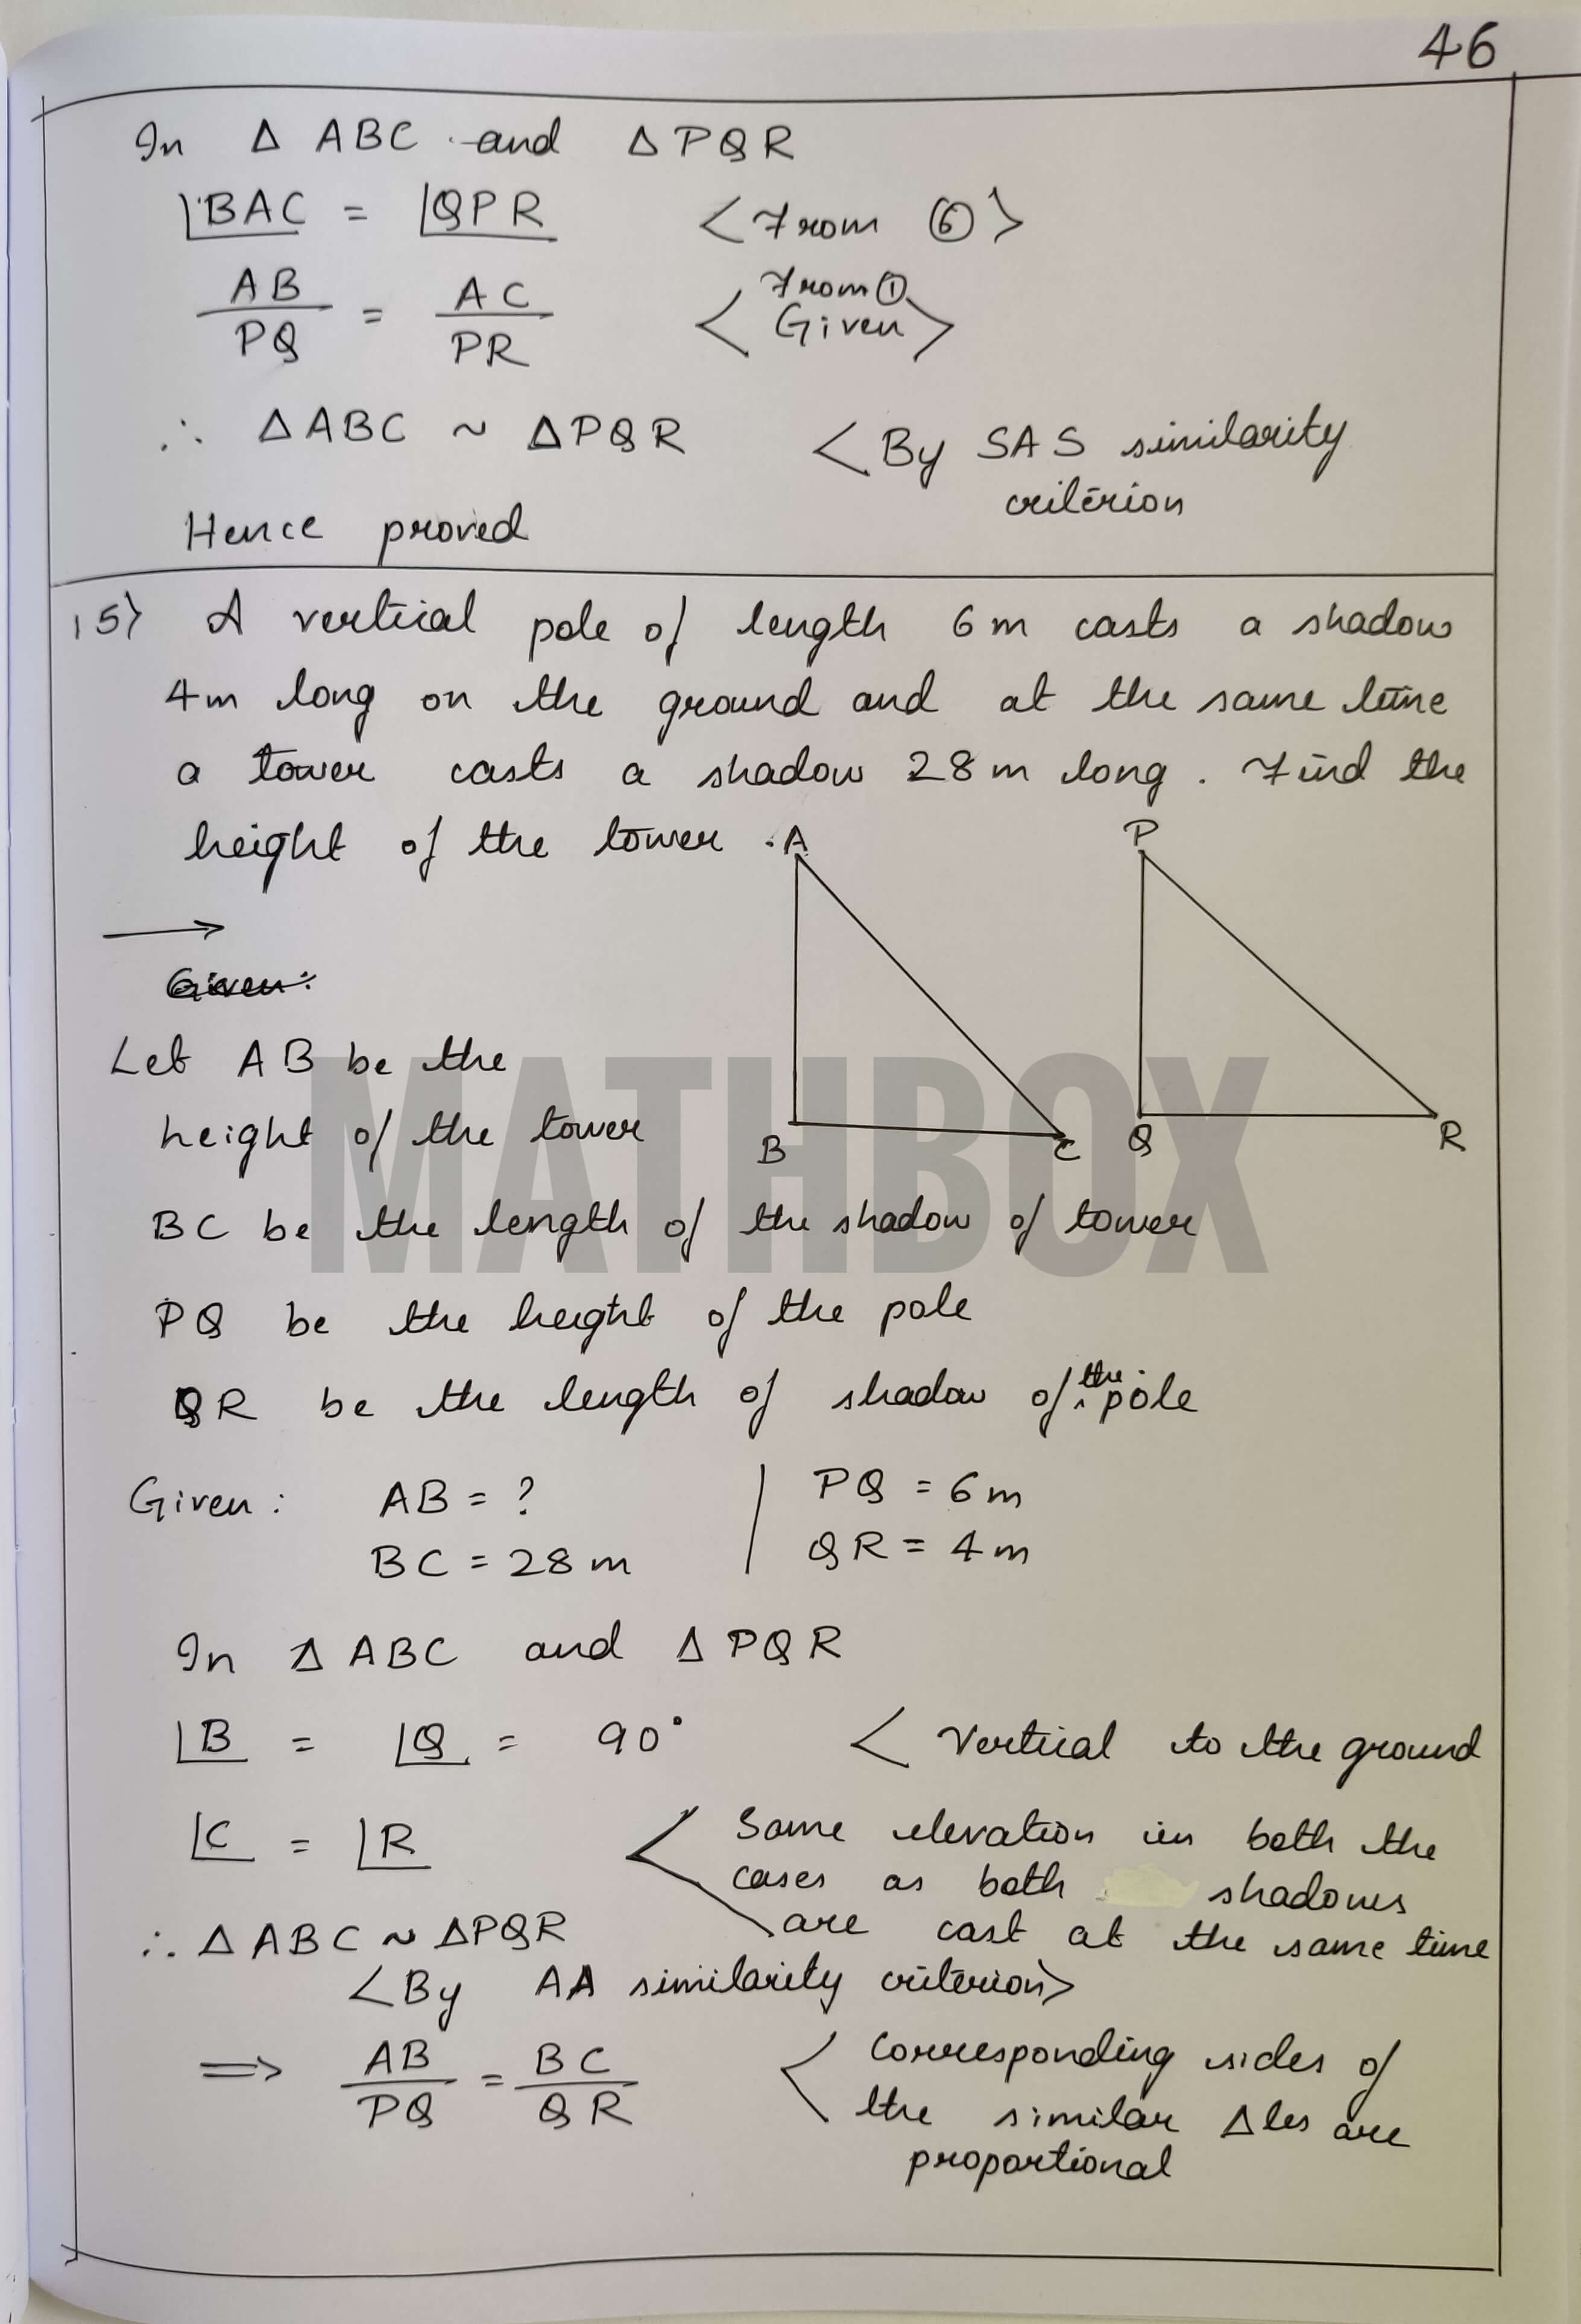 46
In Δ ABC and Δ PQR
∠BAC = ∠QPR <From ⑥>
AB/PQ = AC/PR <From ① Given>
∴ Δ ABC ~ Δ PQR <By SAS similarity
criterion
Hence proved
15> A vertical pole of length 6 m casts a shadow
4 m long on the ground and at the same time
a tower casts a shadow 28 m long. Find the
height of the tower.
A
P
Given:
Let AB be the
height of the tower
B C Q R
BC be the length of the shadow of tower
PQ be the height of the pole
QR be the length of shadow of the pole
Given: AB = ? | PQ = 6 m
BC = 28 m | QR = 4 m
In Δ ABC and Δ PQR
∠B = ∠Q = 90° < Vertical to the ground
∠C = ∠R < Same elevation in both the
cases as both shadows
are cast at the same time
∴ Δ ABC ~ Δ PQR
<By AA similarity criterion>
⇒ AB/PQ = BC/QR < Corresponding sides of
the similar Δles are
proportional
MATHBOX